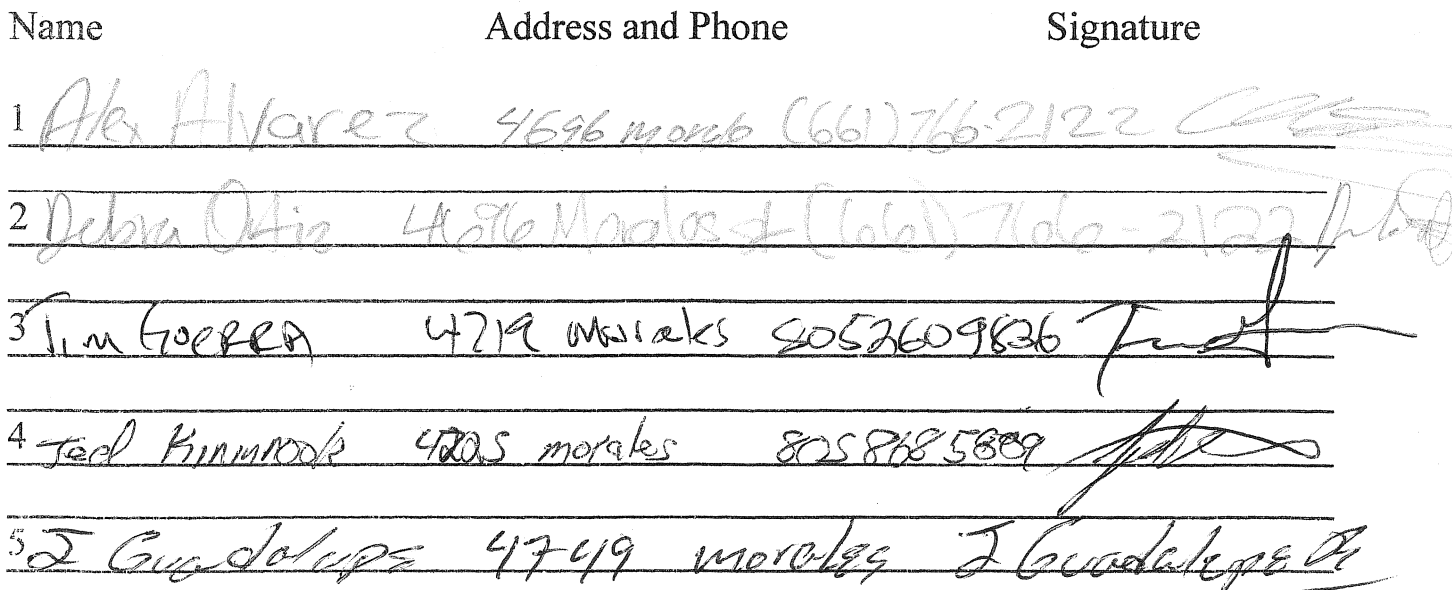 Name Address and Phone Signature
1 Alex Alvarez 4696 (661) 766-2122
2 Debra Ortiz 4696 Morales st (661) 766-2122
3 Tim GUERRA 4719 Morales 8052609836
4 Jed morales
5 J Guadalupe 4749 morales J Guadalupe